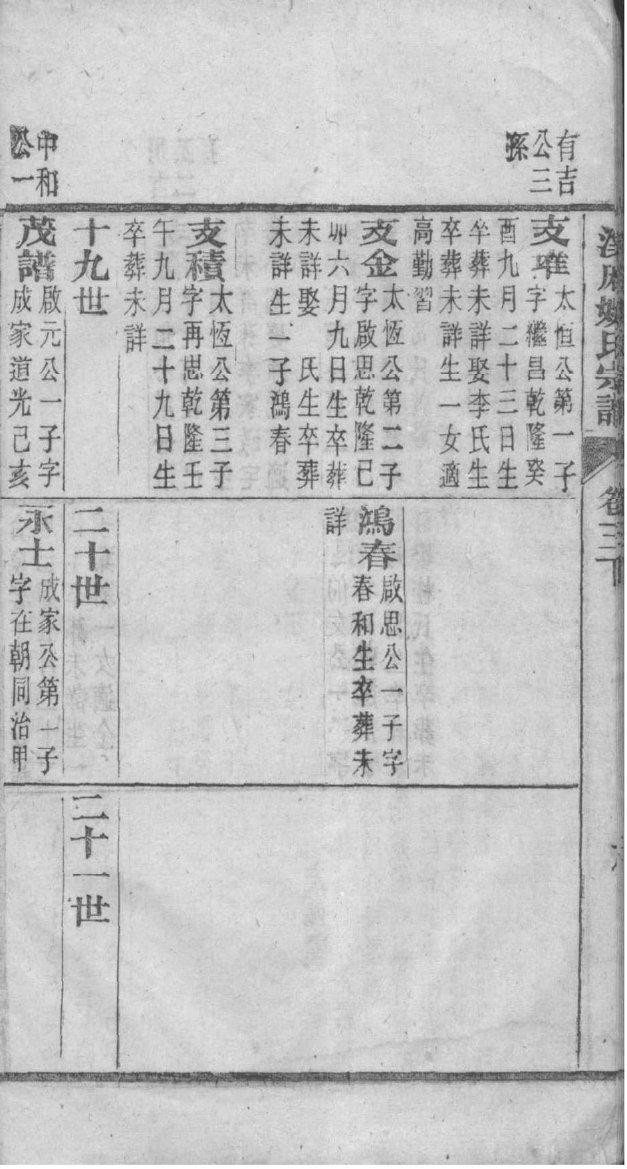 氏宗譜
卷三
有吉
公三
孫
支
太恒公第一子
字繼昌乾隆癸
酉九月二十三日生
卒葬未詳娶李氏生
卒葬未詳生一女適
高勤習
支金
太恆公第二子
字啟思乾隆己
卯六月九日生卒葬
未詳娶 氏生卒葬
未詳生一子鴻春
支積
太恆公第三子
字再思乾隆壬
午九月二十九日生
卒葬未詳
鴻春
啟思公一子字
春和生卒葬未
詳
中和
公一
十九世
二十世
二十一世
茂譜
啟元公一子字
成家道光己亥
永士
成家公第一子
字在朝同治甲